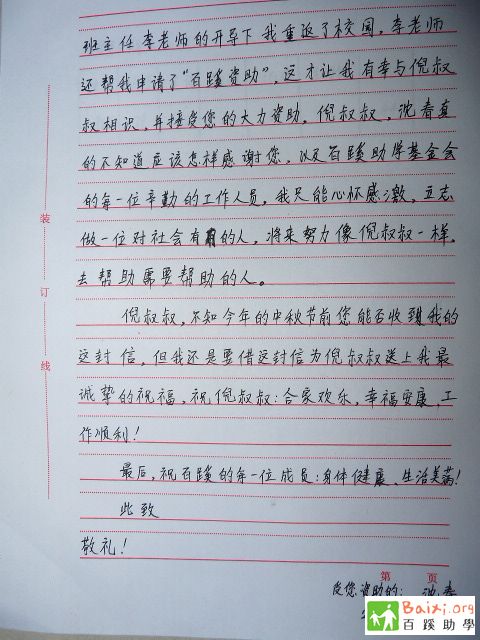 班主任李老师的开导下我重返了校园，李老师
还帮我申请了“百蹊资助”，这才让我有幸与倪叔
叔相识，并接受您的大力资助。倪叔叔，沈春真
的不知道应该怎样感谢您，以及百蹊助学基金会
的每一位辛勤的工作人员，我只能心怀感激，立志
做一位对社会有用的人，将来努力像倪叔叔一样，
去帮助需要帮助的人。
倪叔叔，不知今年的中秋节前您能否收到我的
这封信，但我还是要借这封信为倪叔叔送上我最
诚挚的祝福，祝倪叔叔：合家欢乐，幸福安康，工
作顺利！
最后，祝百蹊的每一位成员：身体健康、生活美满！
此致
敬礼！
装
订
线
第 页
受您资助的：沈春
Baixi.org
百蹊助學